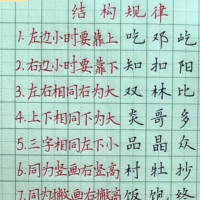 结构规律
1.左边小时要靠上 吃 邓 屹
2.右边小时要靠下 知 扣 阳
3.左右相同右为大 双 林 比
4.上下相同下为大 炎 哥 多
5.三字相同左下小 品 晶 众
6.同为竖画右竖高 村 牡 抄
7.同为撇画右撇高 饭 饱 终